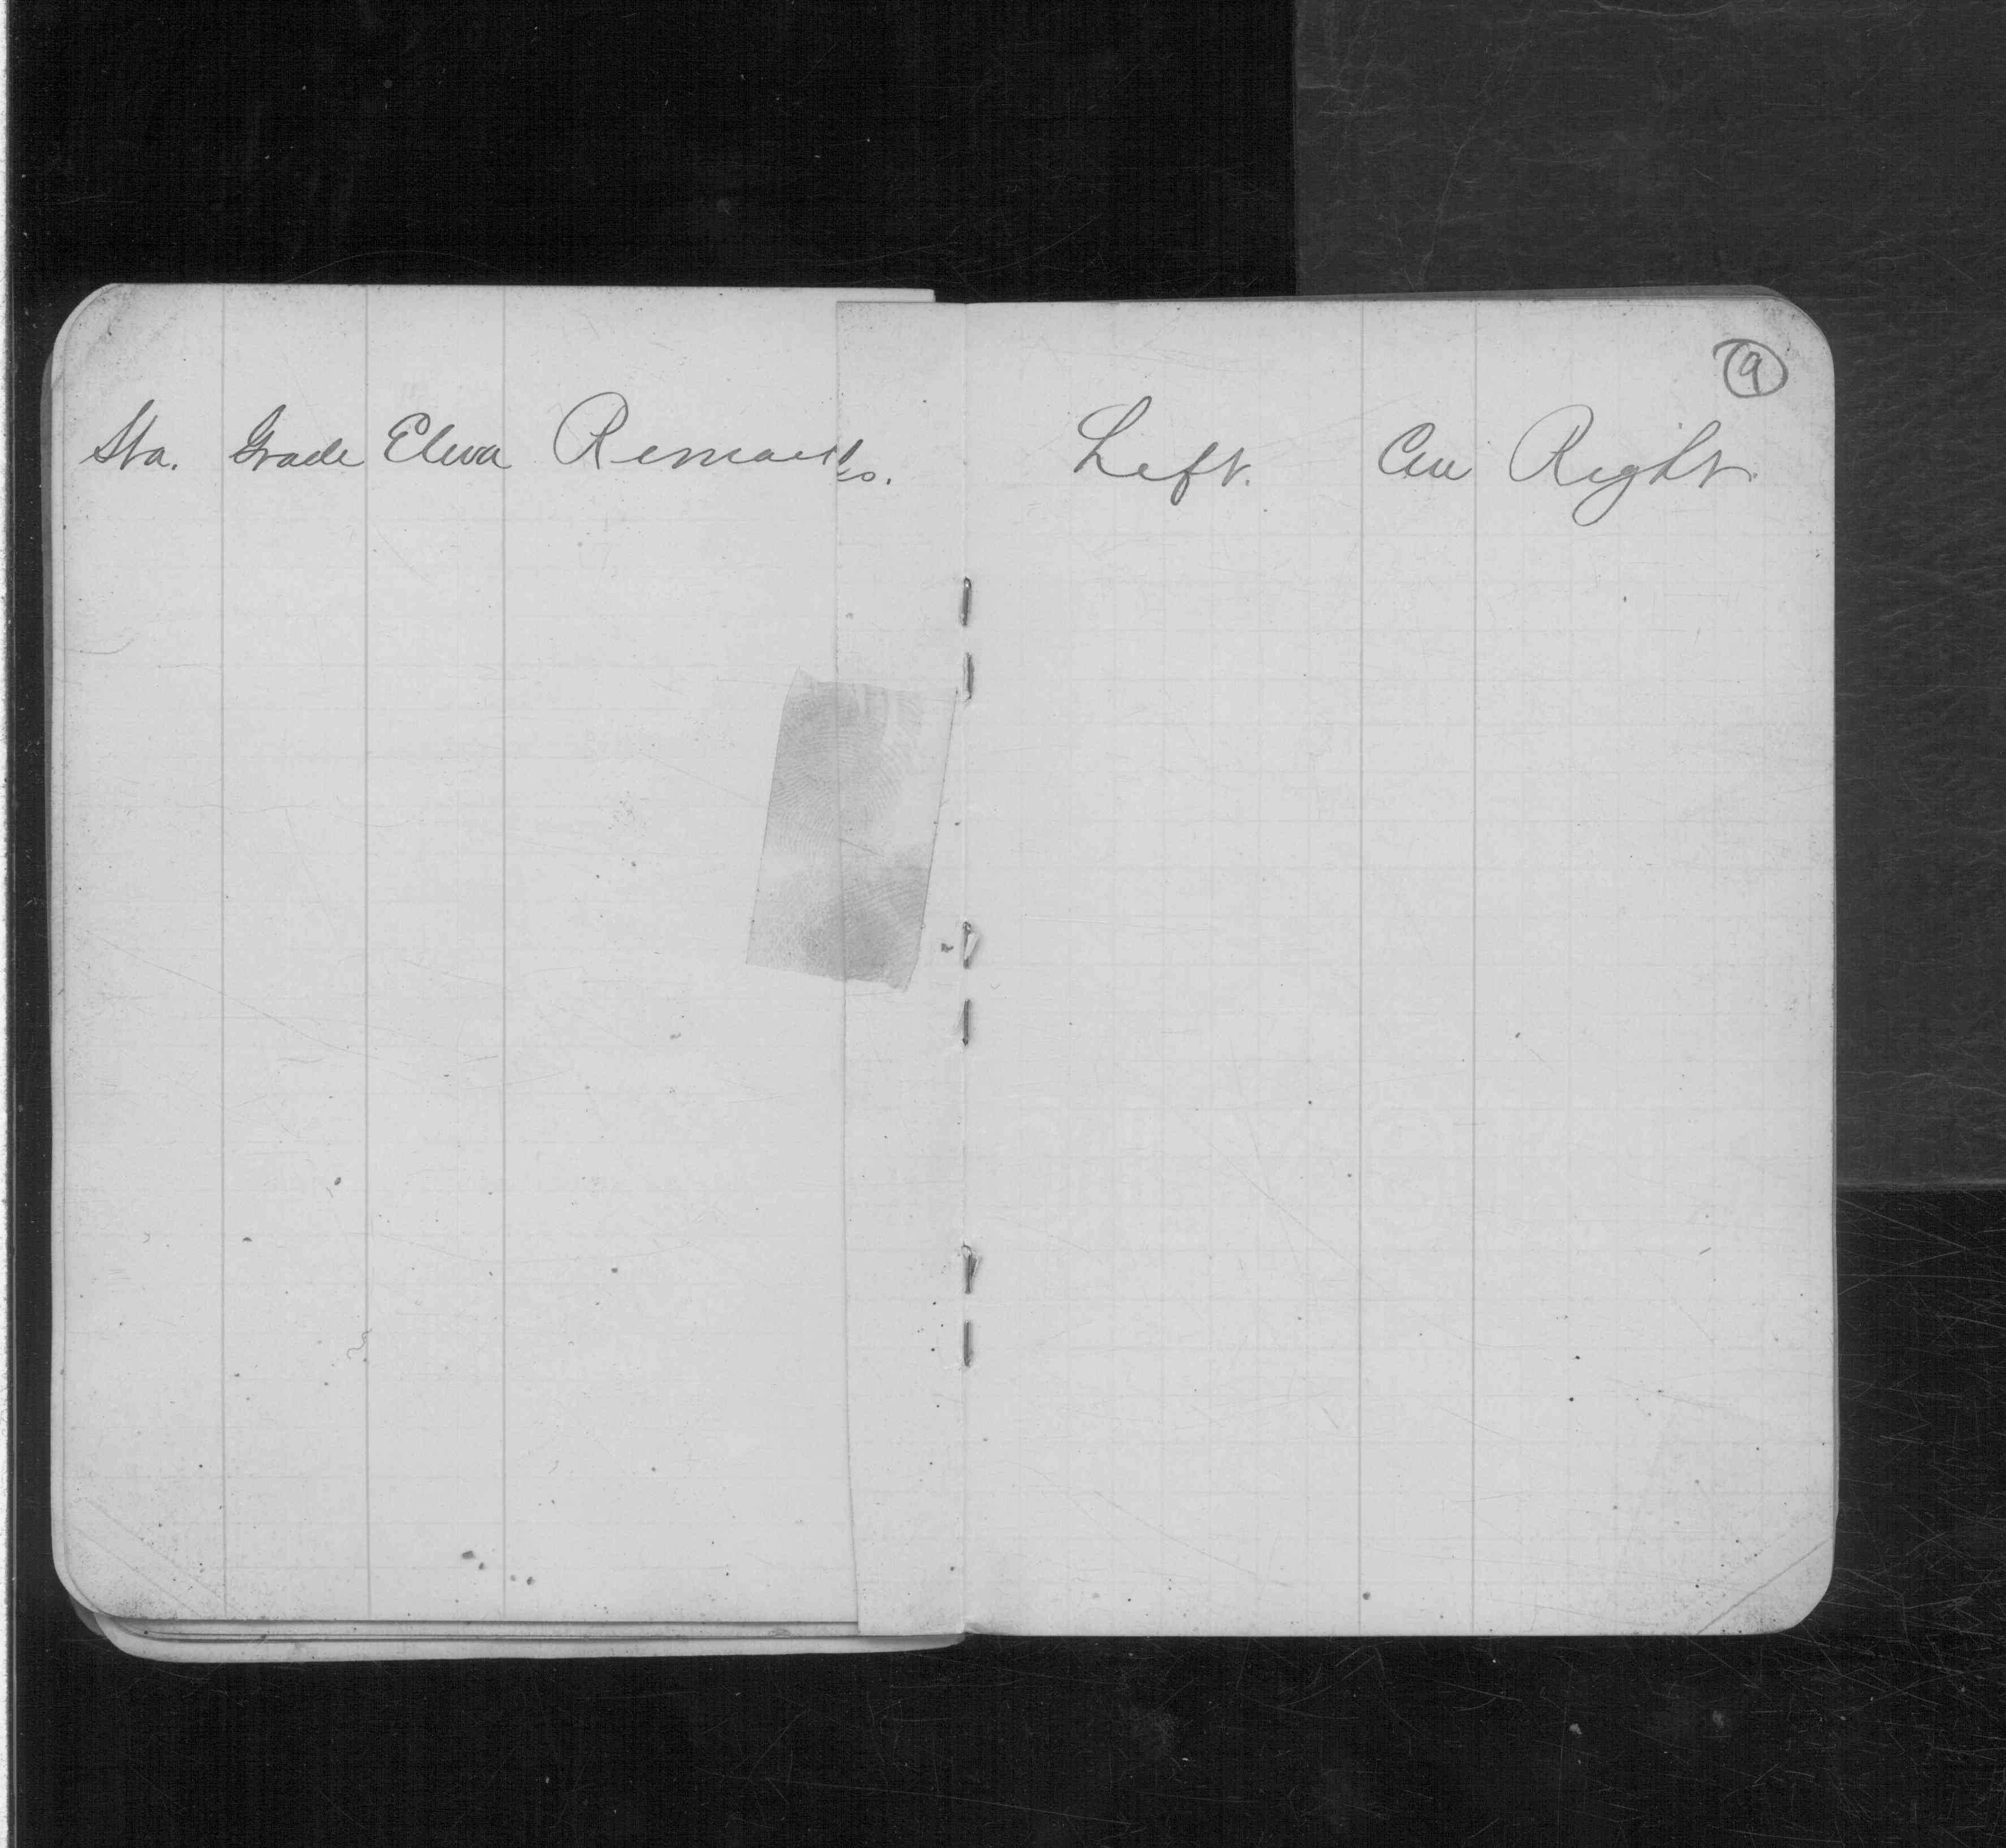 9
Sta. Grade Eleva Remarks. Left. Cen Right.